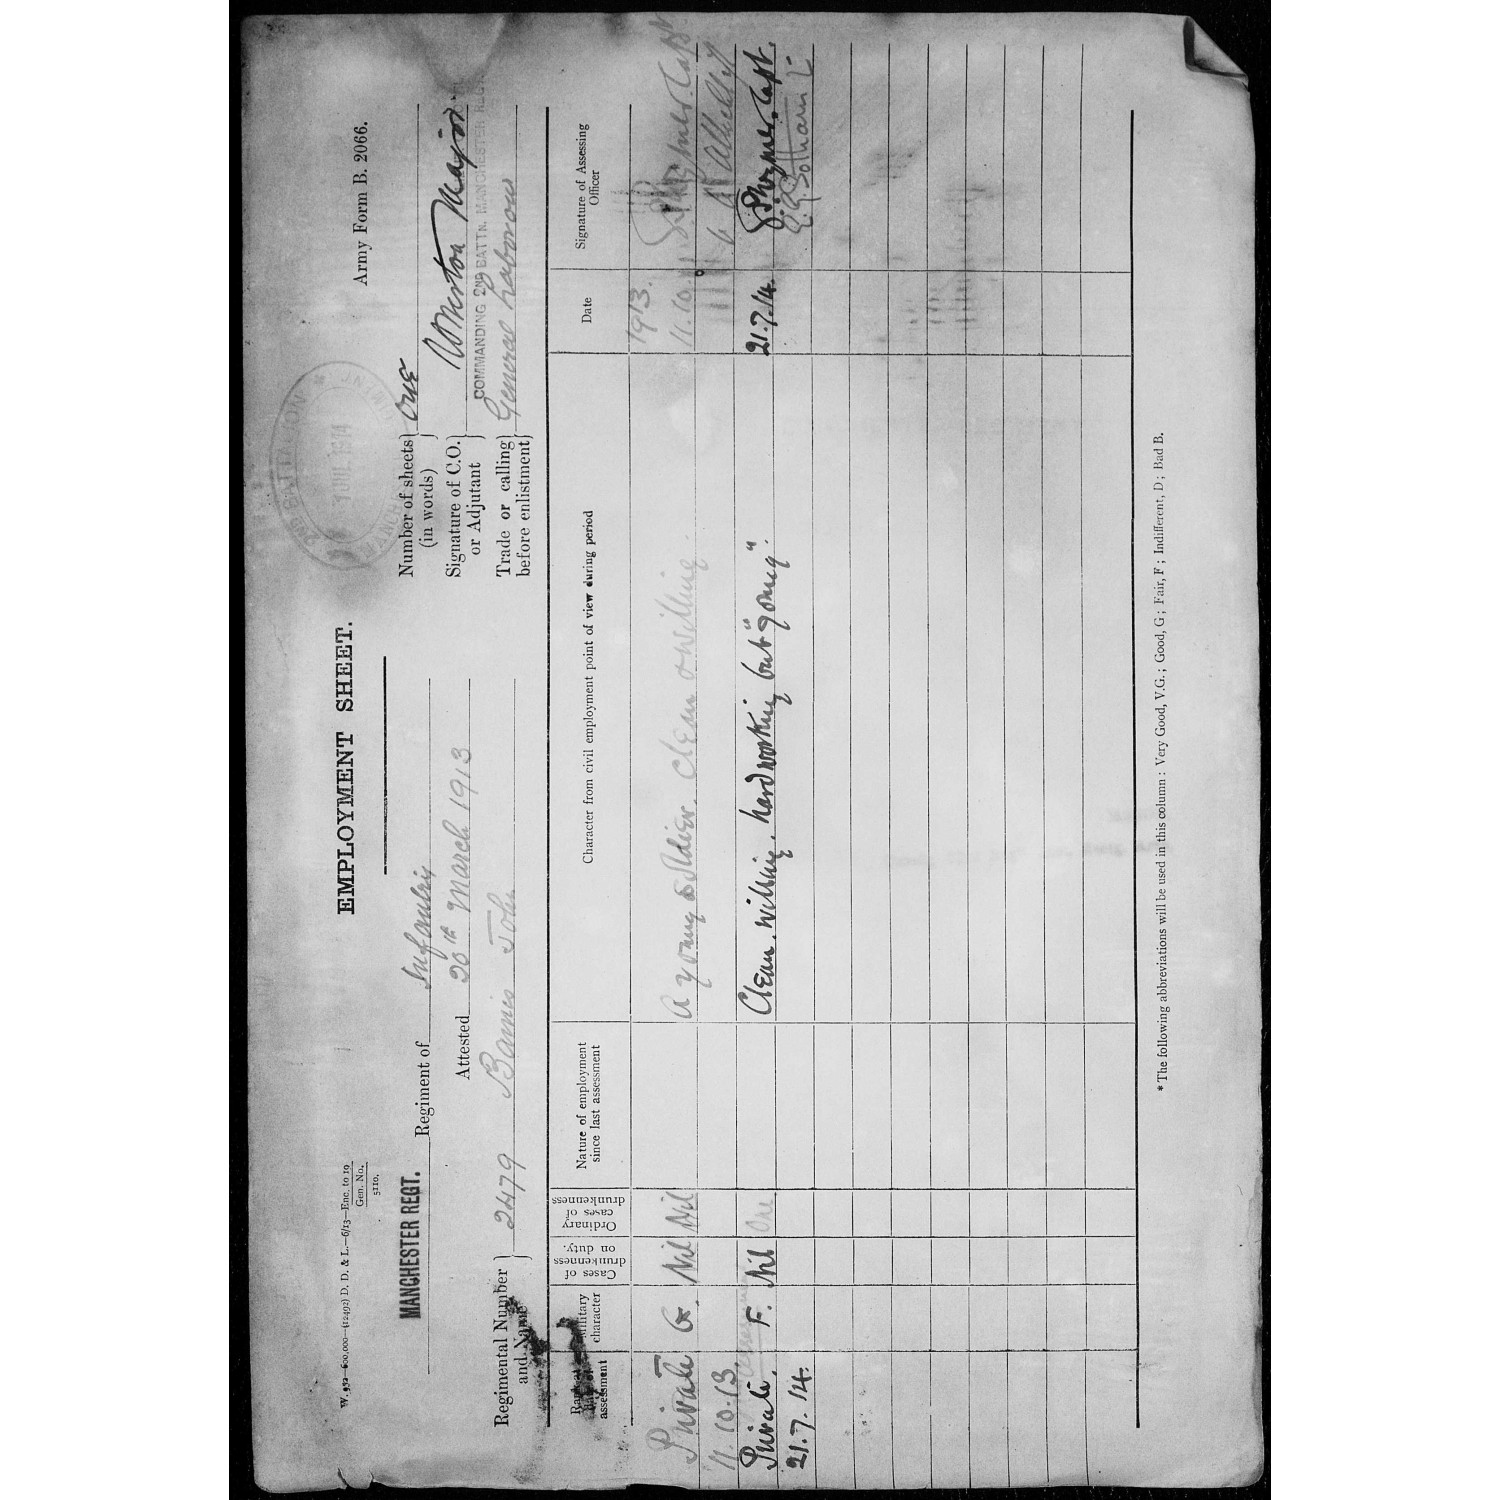 W. 952—600,000—(12492) D. D. & L.—6/13—Enc. to 10
Gen. No.
5110.
Army Form B. 2066.
EMPLOYMENT SHEET.
2ND BATTALION
JUL 1914
MANCHESTER REGT. Regiment of Infantry
Number of sheets (in words) One
Attested 20th March 1913
Signature of C.O. or Adjutant Major
COMMANDING 2ND BATTN. MANCHESTER REGT
Regimental Number and Name 2479 Barnes John
Trade or calling before enlistment General Labourer
assessment
Military character
Cases of drunkenness on duty.
Ordinary cases of drunkenness
Nature of employment since last assessment
Character from civil employment point of view during period
Date
Signature of Assessing Officer
1913.
Private G. Nil Nil A young soldier. Clean & willing. 11.10. Capt
11.10.13
Private. F. Nil One Clean. willing. hardworking but "young". 21.7.14. Capt.
21.7.14.
*The following abbreviations will be used in this column: Very Good, V.G.; Good, G; Fair, F; Indifferent, D; Bad B.